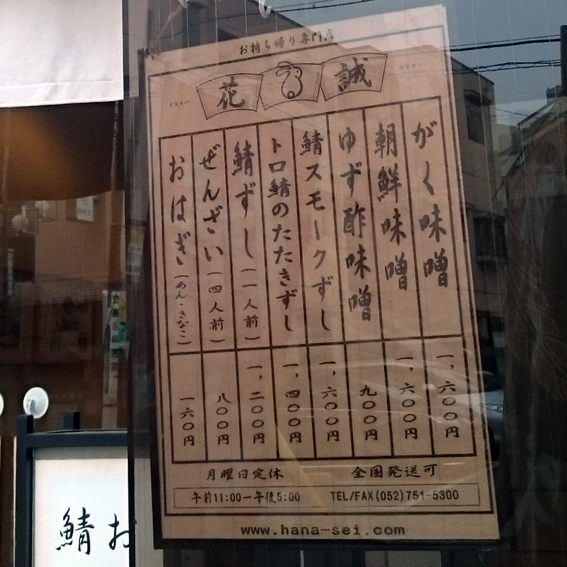 お持ち帰り専門店
花 誠
がく味噌 一、六〇〇円
朝鮮味噌 一、六〇〇円
ゆず酢味噌 九〇〇円
鯖スモークずし 一、六〇〇円
トロ鯖のたたきずし 一、四〇〇円
鯖ずし(一人前) 一、二〇〇円
ぜんざい(四人前) 八〇〇円
おはぎ(あん・きなこ) 一六〇円
月曜日定休 全国発送可
午前11:00ー午後5:00 TEL/FAX(052)751-5300
www.hana-sei.com
鯖お